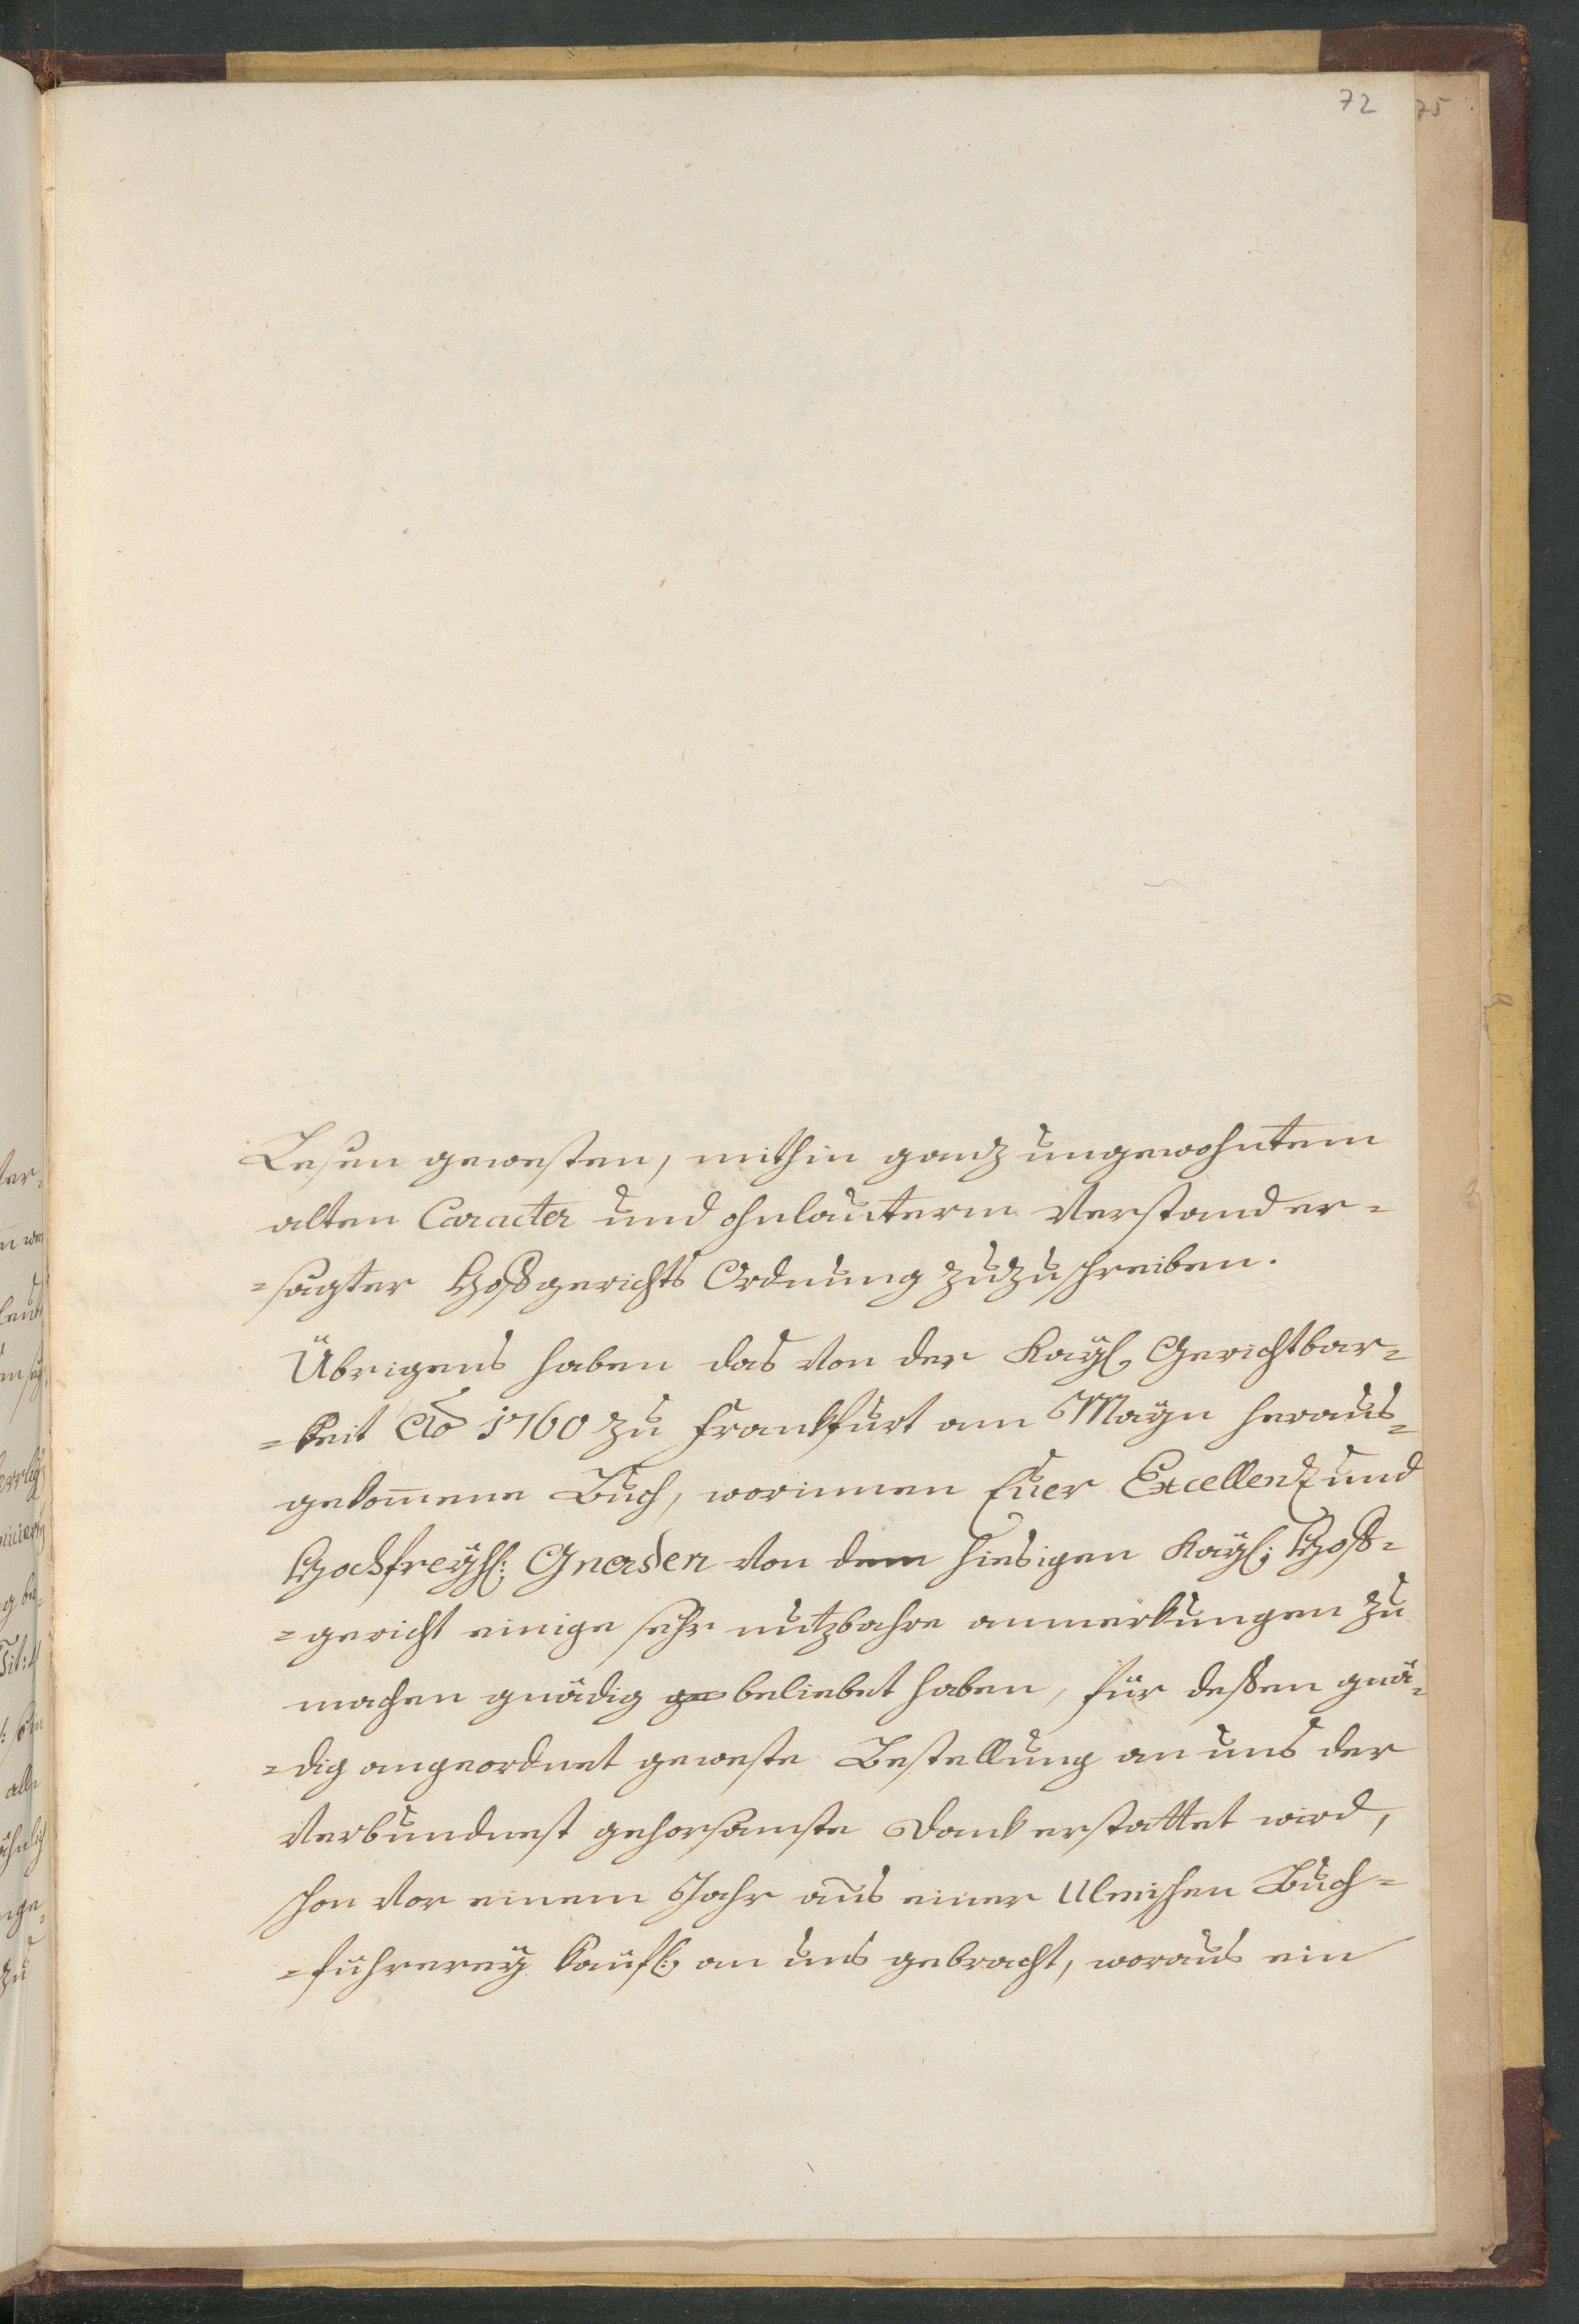 72 75
Lesen gewesten, mithin ganz ungewohntem
alten Caracter und ohnlauterm Verstand er-
-sagter Hoffgerichts Ordnung zuzuschreiben.
Übrigens haben das von der Kayl. Gerichtbar-
-keit Ao 1760 zu Frankfurt am Mayn heraus-
gekom̅ene Buch, worinnen Euer Excellenz und
Hochfreyhl: Gnaden von dem hiesigen Kayl: Hoff-
-gericht einige sehr nutzbahre anmerkungen zu
machen gnädig ge beliebet haben, für deßen gnä-
-dig angeordnet geweste Bestellung an uns der
Verbundnest gehorsamste Dank erstattet wird,
schon vor einem Jahr aus einer Ulmischen Buch-
-führerey kaufl: an uns gebracht, woraus ein